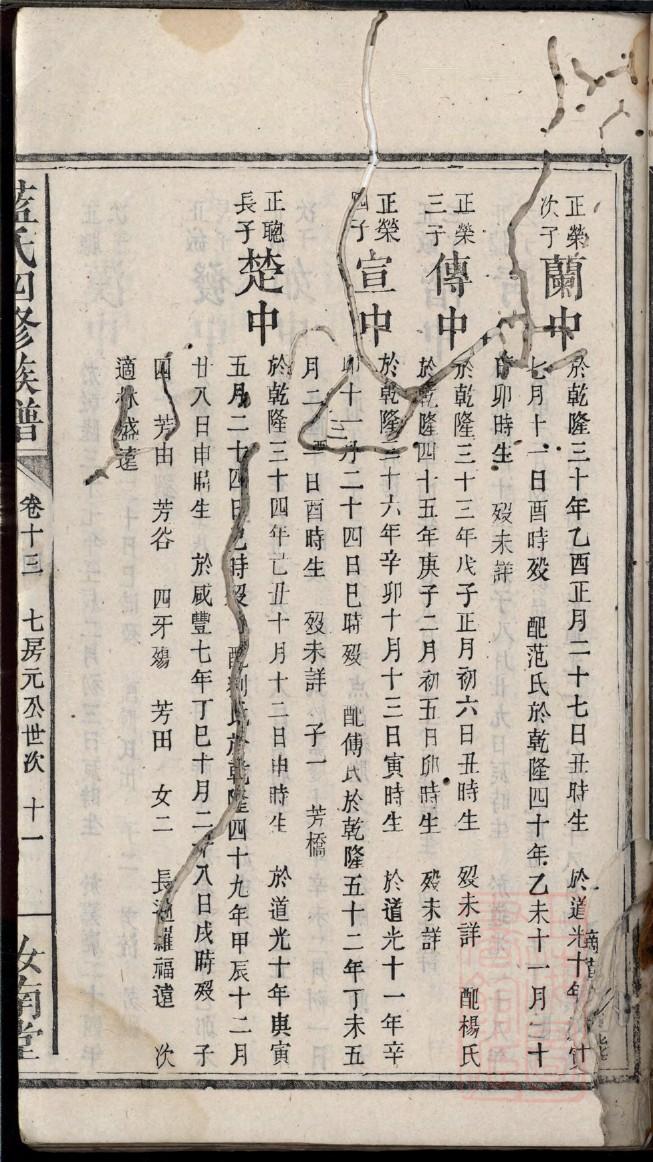 正榮
次子
蘭中
於乾隆三十年乙酉正月二十七日丑時生 於道光十年
七月十一日酉時歿 配范氏於乾隆四十年乙未十一月二十
卯時生 歿未詳
正榮
三子
傳中
於乾隆三十三年戊子正月初六日丑時生 歿未詳 配楊氏
於乾隆四十五年庚子二月初五日卯時生 歿未詳
正榮
四子
宣中
於乾隆三十六年辛卯十月十三日寅時生 於道光十一年辛
卯十一月二十四日巳時歿 配傅氏於乾隆五十二年丁未五
月二 日酉時生 歿未詳 子一 芳橋
正聰
長子
楚中
於乾隆三十四年己丑十月十二日申時生 於道光十年庚寅
五月二十四日巳時歿 配劉氏於乾隆四十九年甲辰十二月
廿八日申時生 於咸豐七年丁巳十月二十八日戌時歿 子
四 芳由 芳谷 四牙殤 芳田 女二 長適羅福遠 次
適林盛遠
藍氏四修族譜 卷十三 七房元公世次 十一 汝南堂